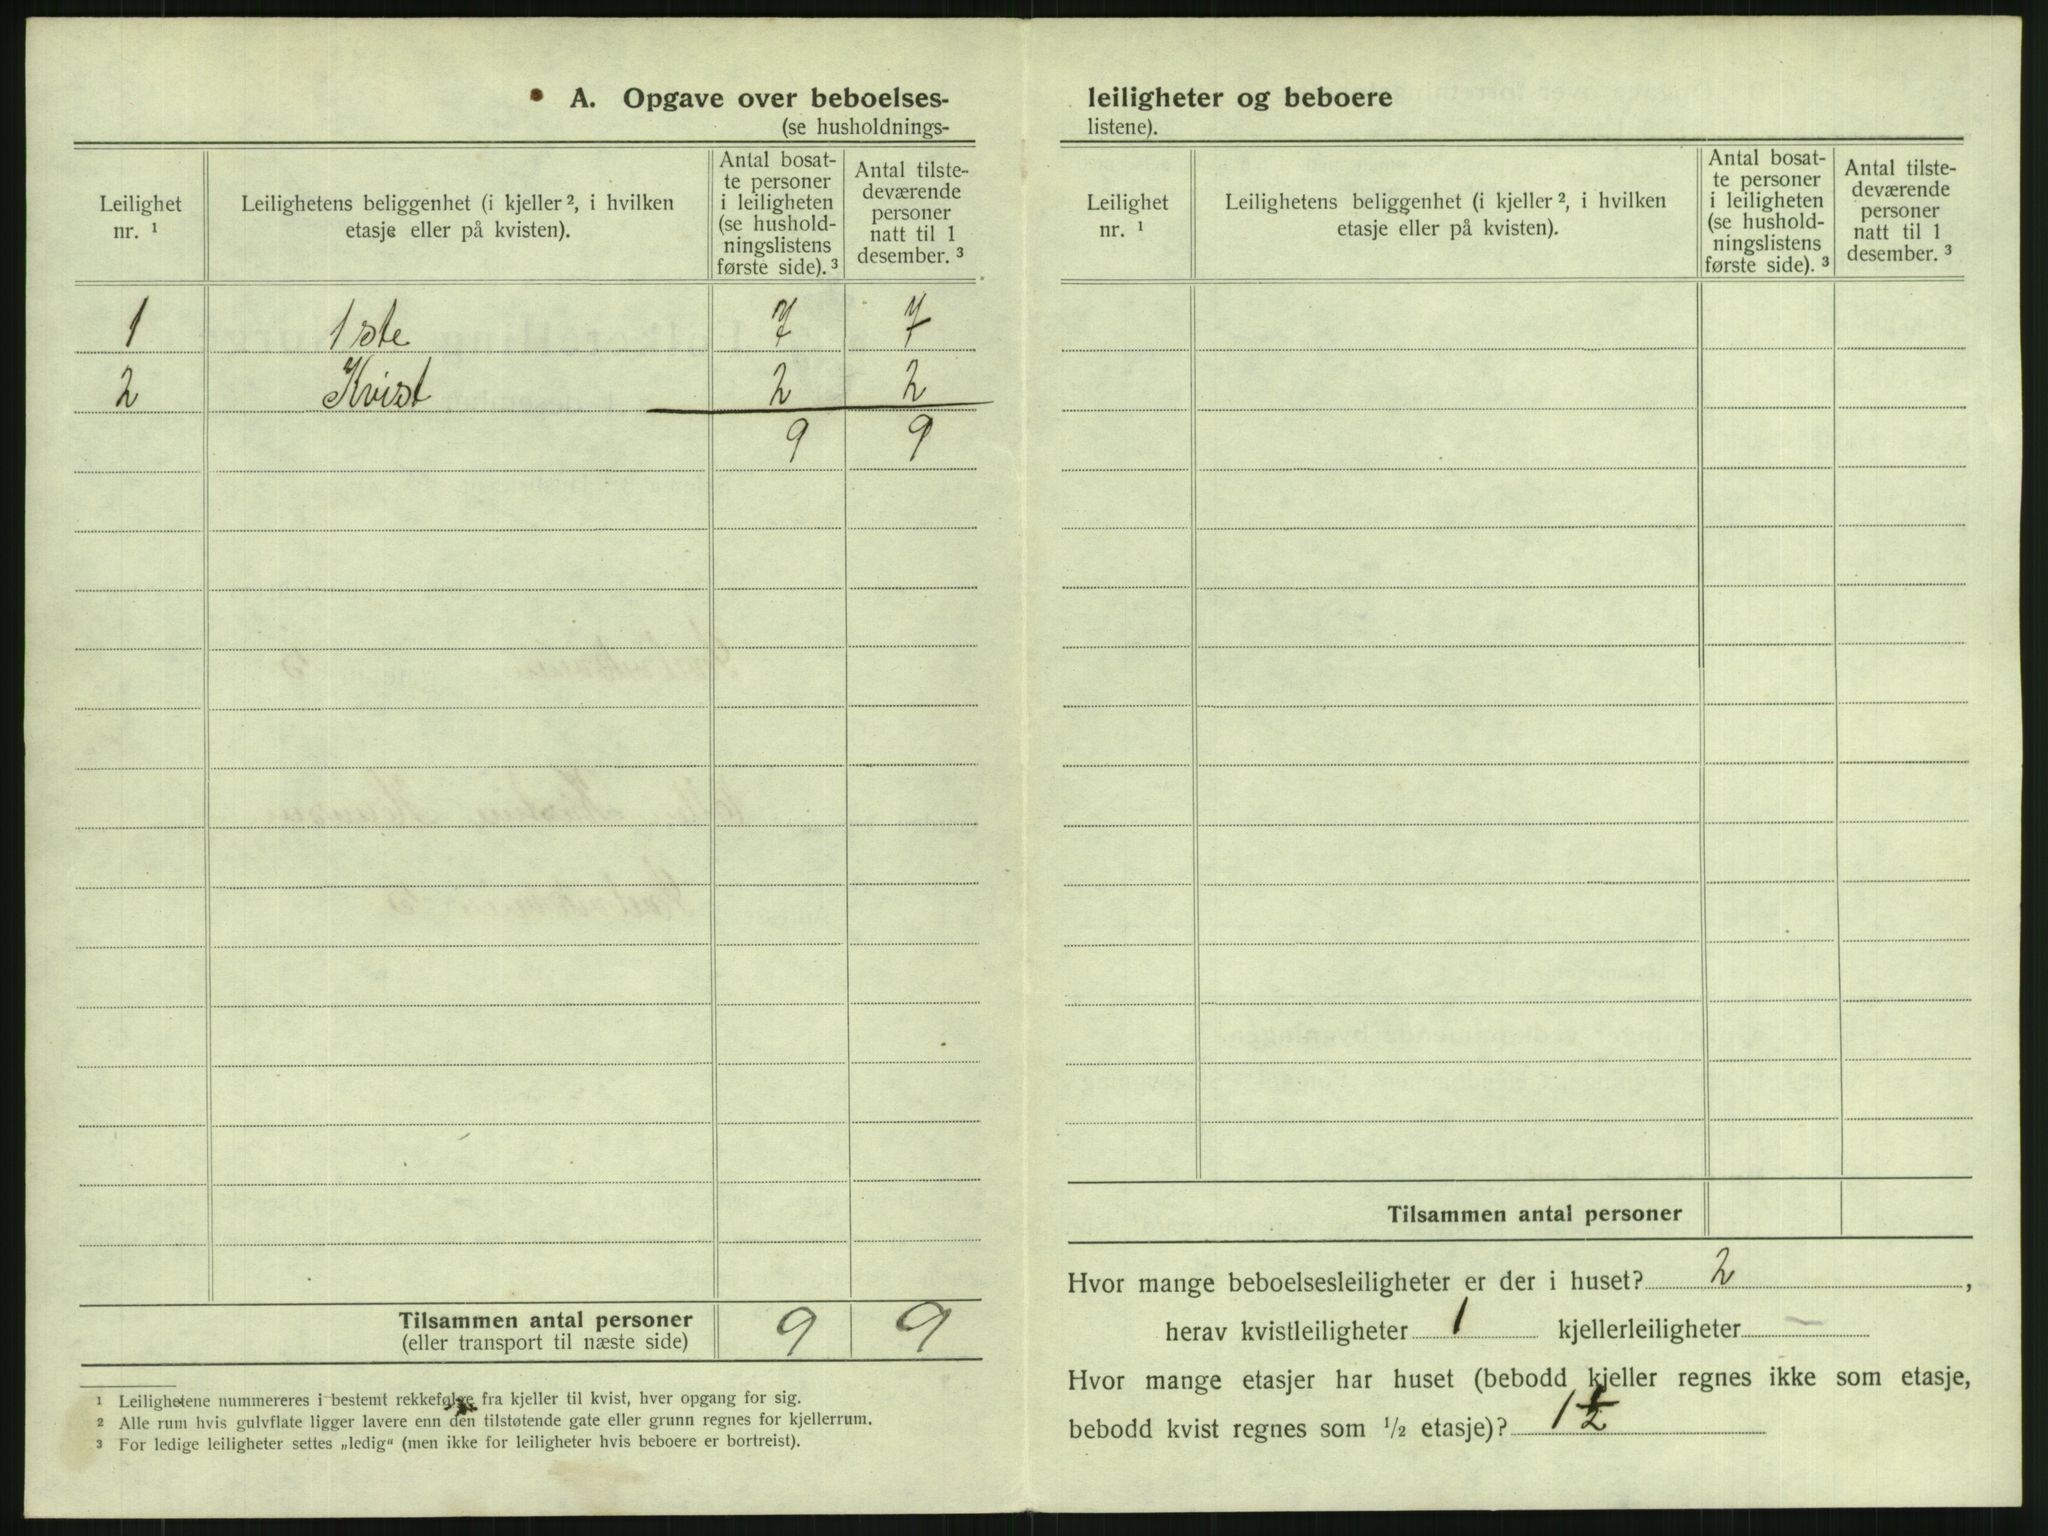 A. Opgave over beboelses-
(se husholdnings-
Leilighet nr. 1
Leilighetens beliggenhet (i kjeller 2, i hvilken etasje eller på kvisten).
Antal bosat-
te personer
i leiligheten
(se hushold-
ningslistens
første side). 3
Antal tilste-
deværende
personer
natt til 1
desember. 3
1 1ste 7 7
2 Kvist 2 2
9 9
Tilsammen antal personer 9 9
(eller transport til næste side)
1 Leilighetene nummereres i bestemt rekkefølge fra kjeller til kvist, hver opgang for sig.
2 Alle rum hvis gulvflate ligger lavere enn den tilstøtende gate eller grunn regnes for kjellerrum.
3 For ledige leiligheter settes „ledig" (men ikke for leiligheter hvis beboere er bortreist).
leiligheter og beboere
listene).
Leilighet nr. 1
Leilighetens beliggenhet (i kjeller 2, i hvilken etasje eller på kvisten).
Antal bosat-
te personer
i leiligheten
(se hushold-
ningslistens
første side). 3
Antal tilste-
deværende
personer
natt til 1
desember. 3
Tilsammen antal personer
Hvor mange beboelsesleiligheter er der i huset? 2,
herav kvistleiligheter 1 kjellerleiligheter —
Hvor mange etasjer har huset (bebodd kjeller regnes ikke som etasje,
bebodd kvist regnes som 1/2 etasje)? 1 1/2